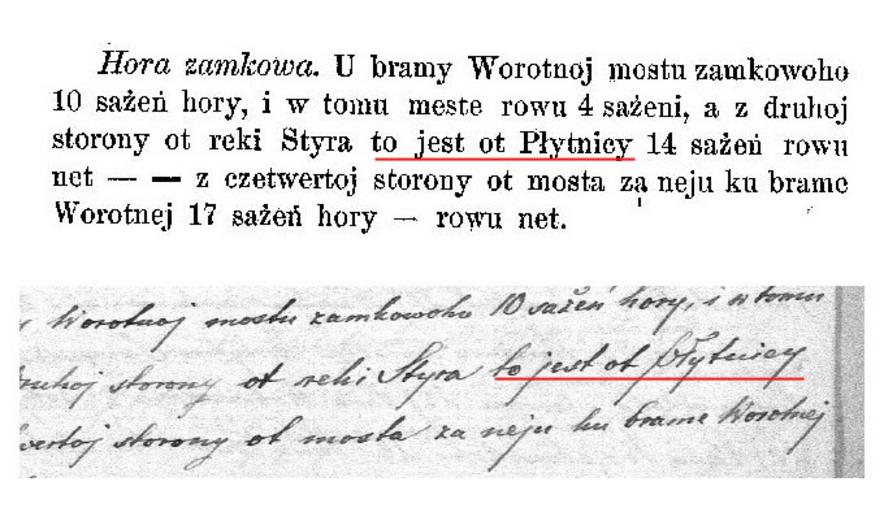 Hora zamkowa. U bramy Worotnoj mostu zamkowoho
10 sažeń hory, i w tomu meste rowu 4 saženi, a z druhoj
storony ot reki Styra to jest ot Płytnicy 14 sažeń rowu
net — — z czetwertoj storony ot mosta za neju ku brame
Worotnej 17 sažeń hory — rowu net.
Worotnoj mostu zamkowoho 10 sažeń hory, i w tomu
druhoj storony ot reki Styra to jest ot płytnicy
wertoj storony ot mosta za neju ku brame Worotnej